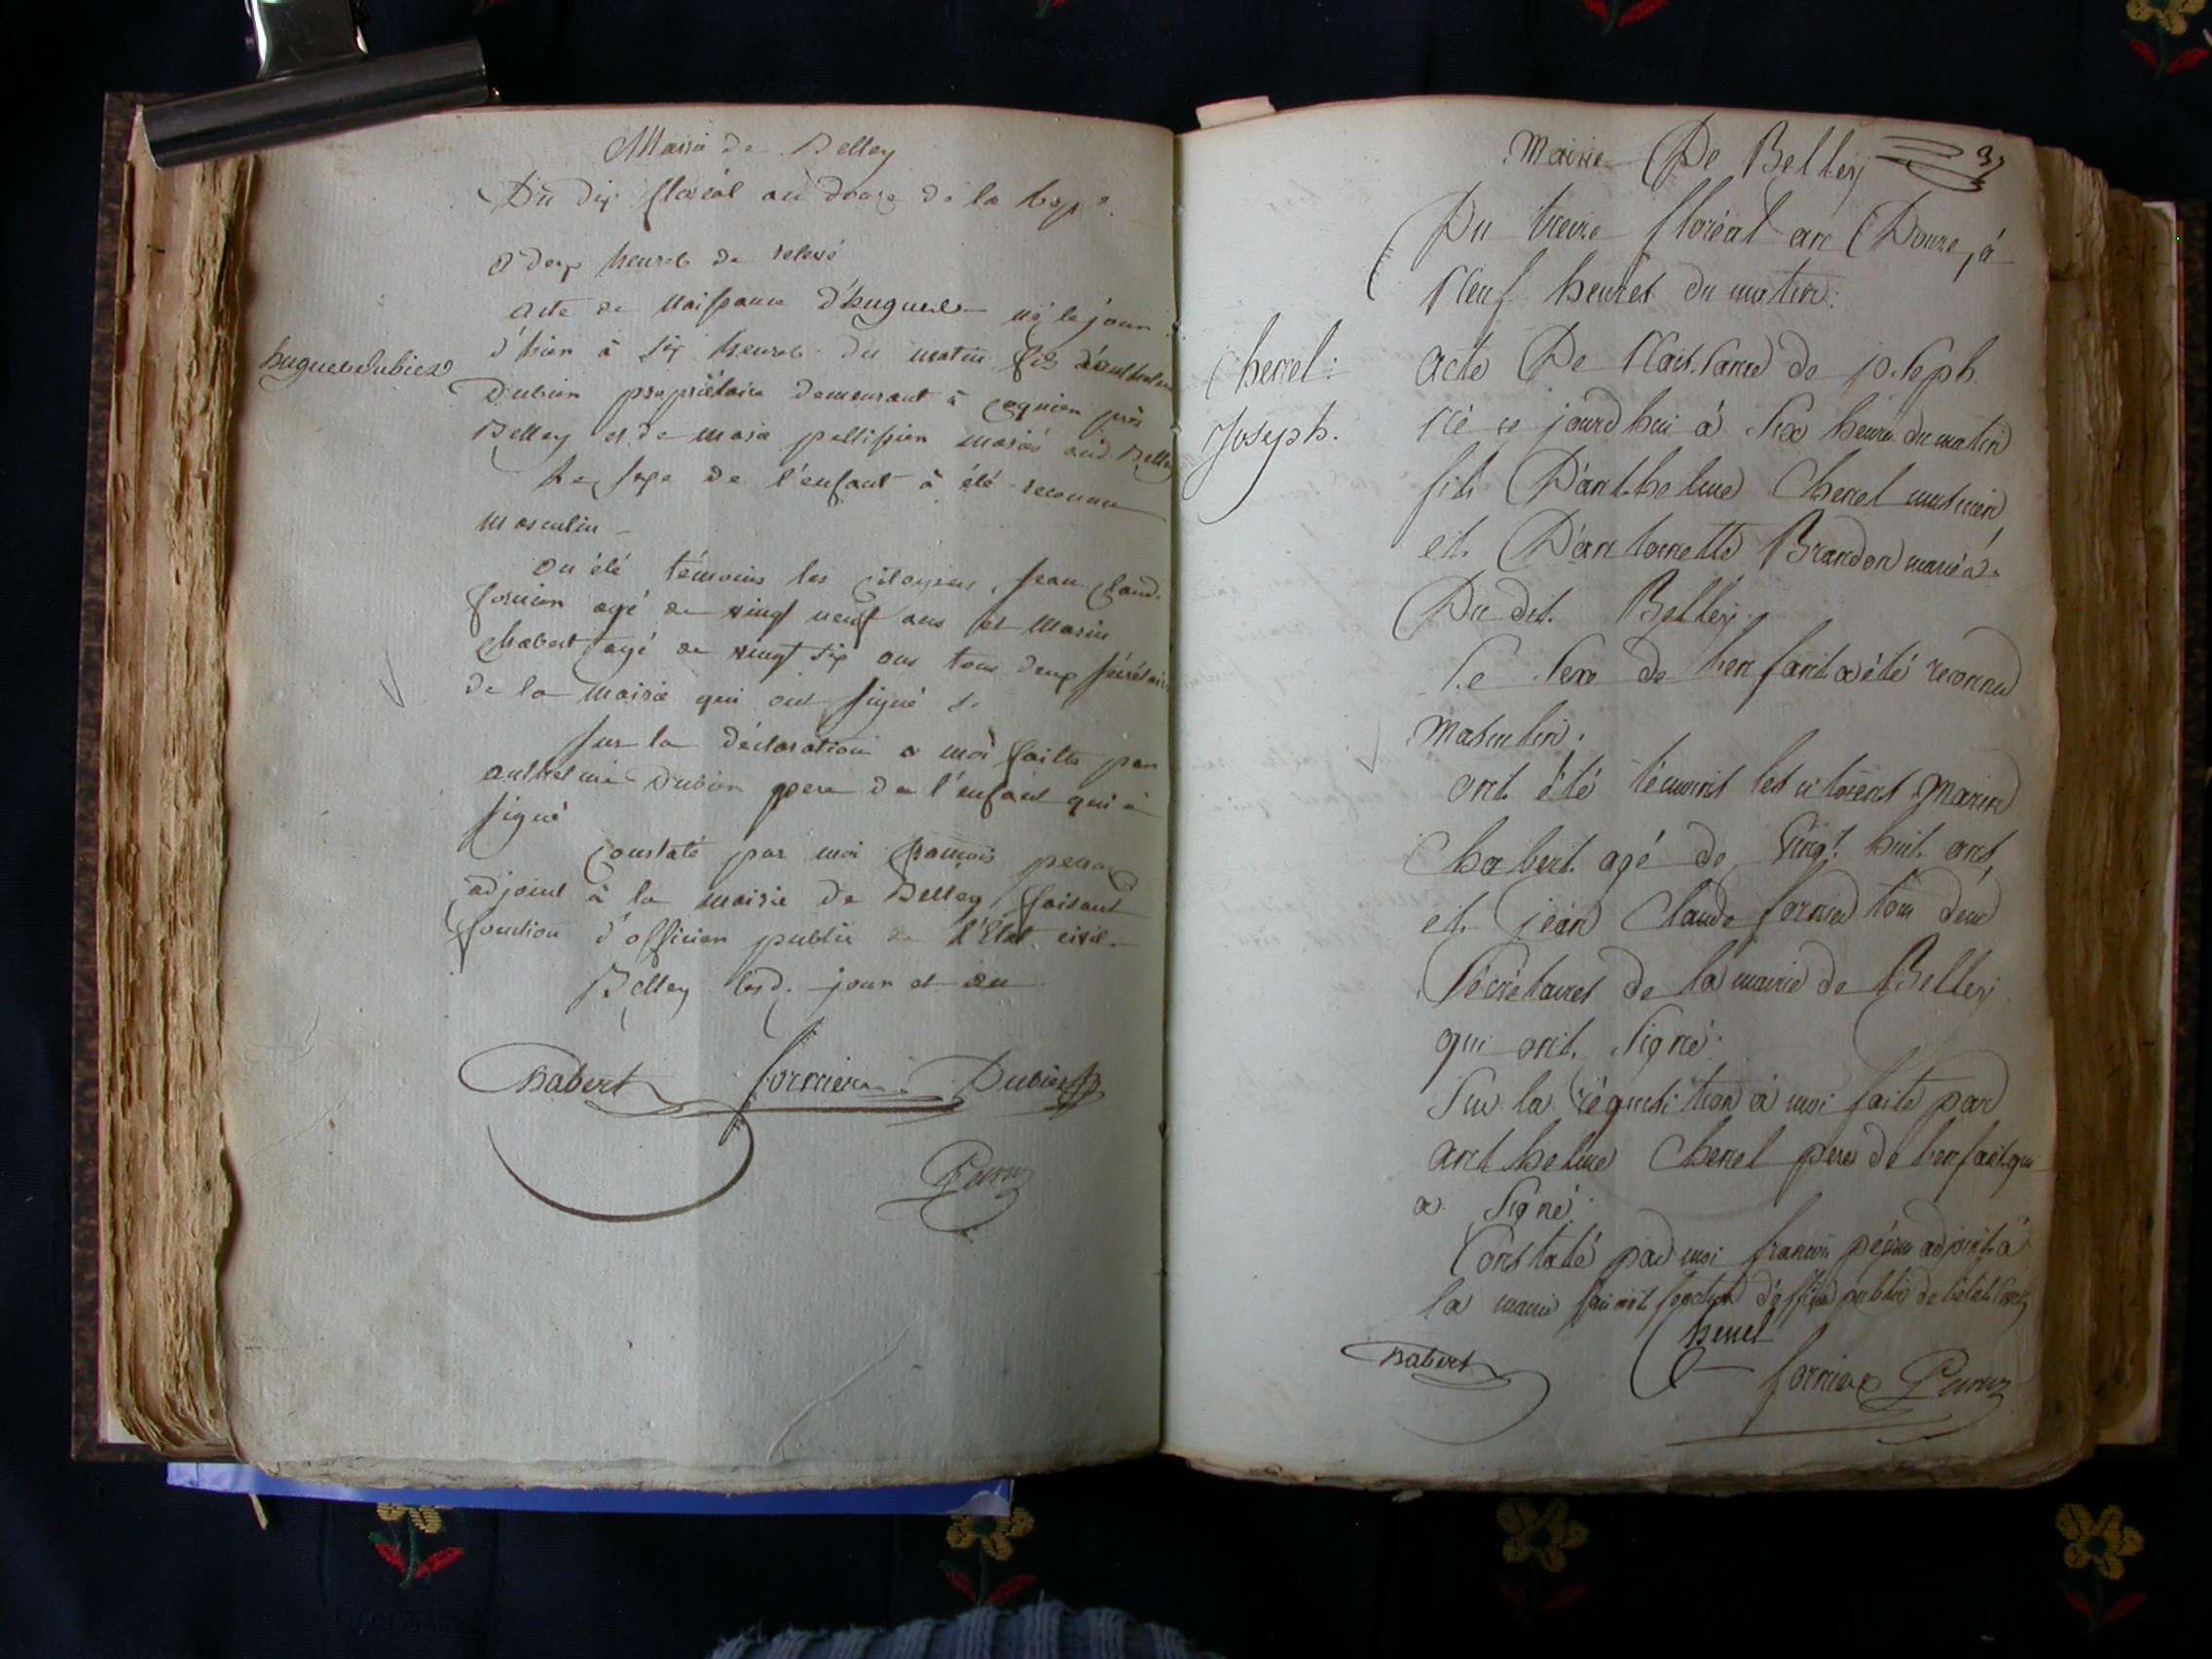 Mairie de Belley
Du dix floréal an douze de la Rep.e
a deux heures de relevé
acte de Naissance d'hugues né le jour
d'hier à six heures du matin fils d'anthelme
hugues dubier
Dubier propriétaire demeurant à près
Belley et de marie pellissier mariés aud. Belley
Le sexe de l'enfant à été reconnu
masculin
On été témoins les citoyens Jean Claud.
fornier agé de vingt neuf ans et Marin
Chabert agé de vingt six ans tous deux sécrétaires
de la Mairie qui ont signé
Sur la déclaration a moi faitte par
anthelme Dubier pere de l'enfant qui à
signé
Constaté par moi francois
adjoint à la mairie de Belley faisant
fonction d'officier public de l'état civil
Belley lesd. jour et an
Chabert fornier Dubier
Mairie De Belley
Du treize floréal an Douze, à
Neuf heures du matin.
Cherel:
Joseph.
acte De Naissance de joseph
Né ce jourdhui à six heures du matin
fils D'anthelme Cherel
et D'antoinette Brandon mariés
Du dit Belley.
Le sexe de lenfant a été reconnu
Masculin.
ont été témoins les citoiens Marin
Chabert agé de vingt huit ans,
et jean Claude fornier tous deux
Sécrétaires de la mairie de Belley
qui ont signé.
Sur la réquisition à moi faite par
anthelme Cherel pere de lenfant qui
a signé
Constaté par moi francois adjoint à
la mairie faisant fonction d'officier public de létat civil
Cherel
Chabert
fornier